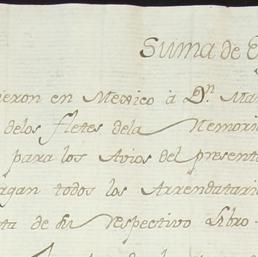 Suma de
ieron en Mexico à Dn. Ma
delos fletes dela Memori
para los Avios del present
agan todos los Arrendatari
ta de su respectivo Libro